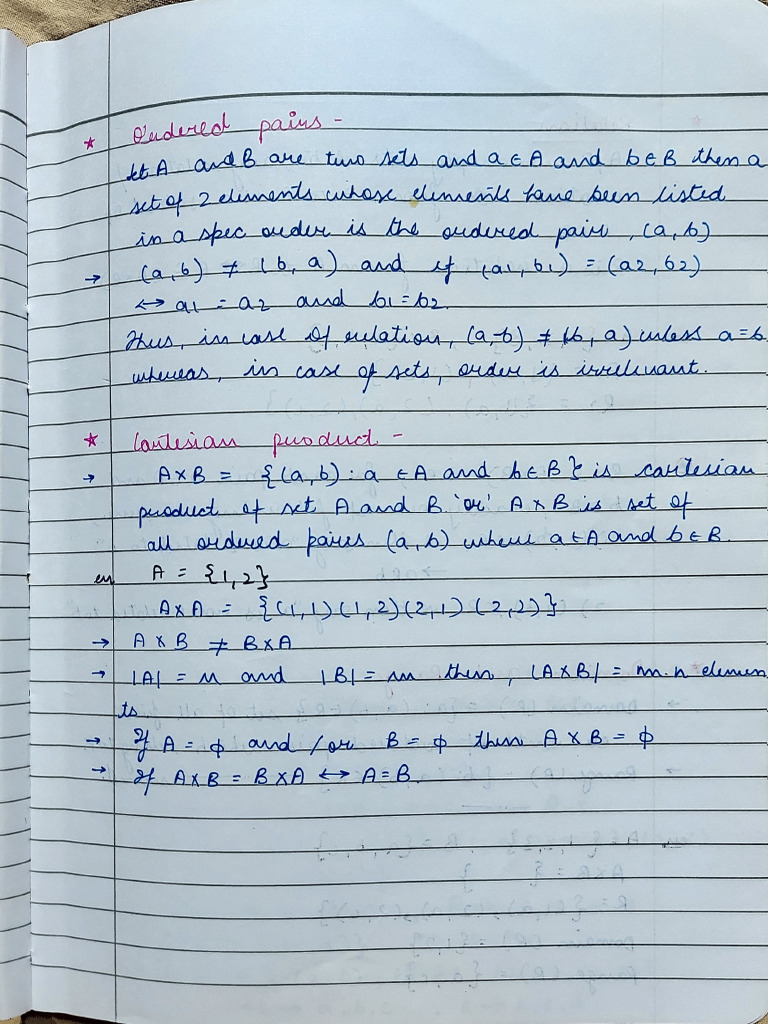 * Ordered pairs -
let A and B are two sets and a ∈ A and b ∈ B then a
set of 2 elements whose elements have been listed
in a spec order is the ordered pair, (a, b)
→ (a, b) ≠ (b, a) and if (a1, b1) = (a2, b2)
↔ a1 = a2 and b1 = b2.
Thus, in case of relation, (a, b) ≠ (b, a) unless a = b
whereas, in case of sets, order is irrelevant.
* Cartesian product -
→ A × B = {(a, b) : a ∈ A and b ∈ B} is cartesian
product of set A and B 'or' A × B is set of
all ordered pairs (a, b) where a ∈ A and b ∈ B.
ex A = {1, 2}
A × A = {(1, 1) (1, 2) (2, 1) (2, 2)}
→ A × B ≠ B × A
→ |A| = n and |B| = m then, |A × B| = m.n elemen
ts
→ If A = ϕ and /or B = ϕ then A × B = ϕ
→ If A × B = B × A ↔ A = B.